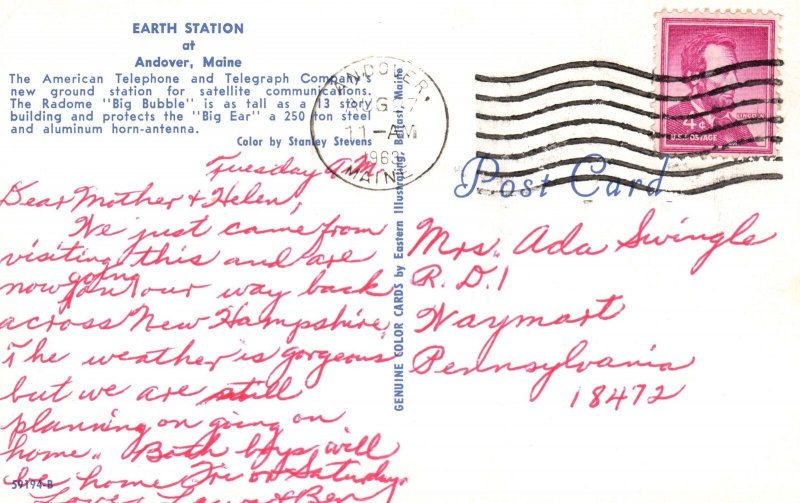 EARTH STATION
at
Andover, Maine
The American Telephone and Telegraph Company's
new ground station for satellite communications.
The Radome "Big Bubble" is as tall as a 13 story
building and protects the "Big Ear" a 250 ton steel
and aluminum horn-antenna.
Color by Stanley Stevens
ANDOVER,
11-AM
MAINE
LINCOLN
4¢
U.S. POSTAGE
Post Card
GENUINE COLOR CARDS by Eastern Illustrating, Belfast, Maine
Tuesday A.M.
Dear Mother & Helen,
We just came from
visiting this and are
now going on our way back
across New Hampshire.
The weather is gorgeous
but we are still
planning on going on
home. Both boys will
be home Fri or Saturday
Love, & Ben
59194-B
Mrs. Ada Swingle
R.D.1
Waymart
Pennsylvania
18472